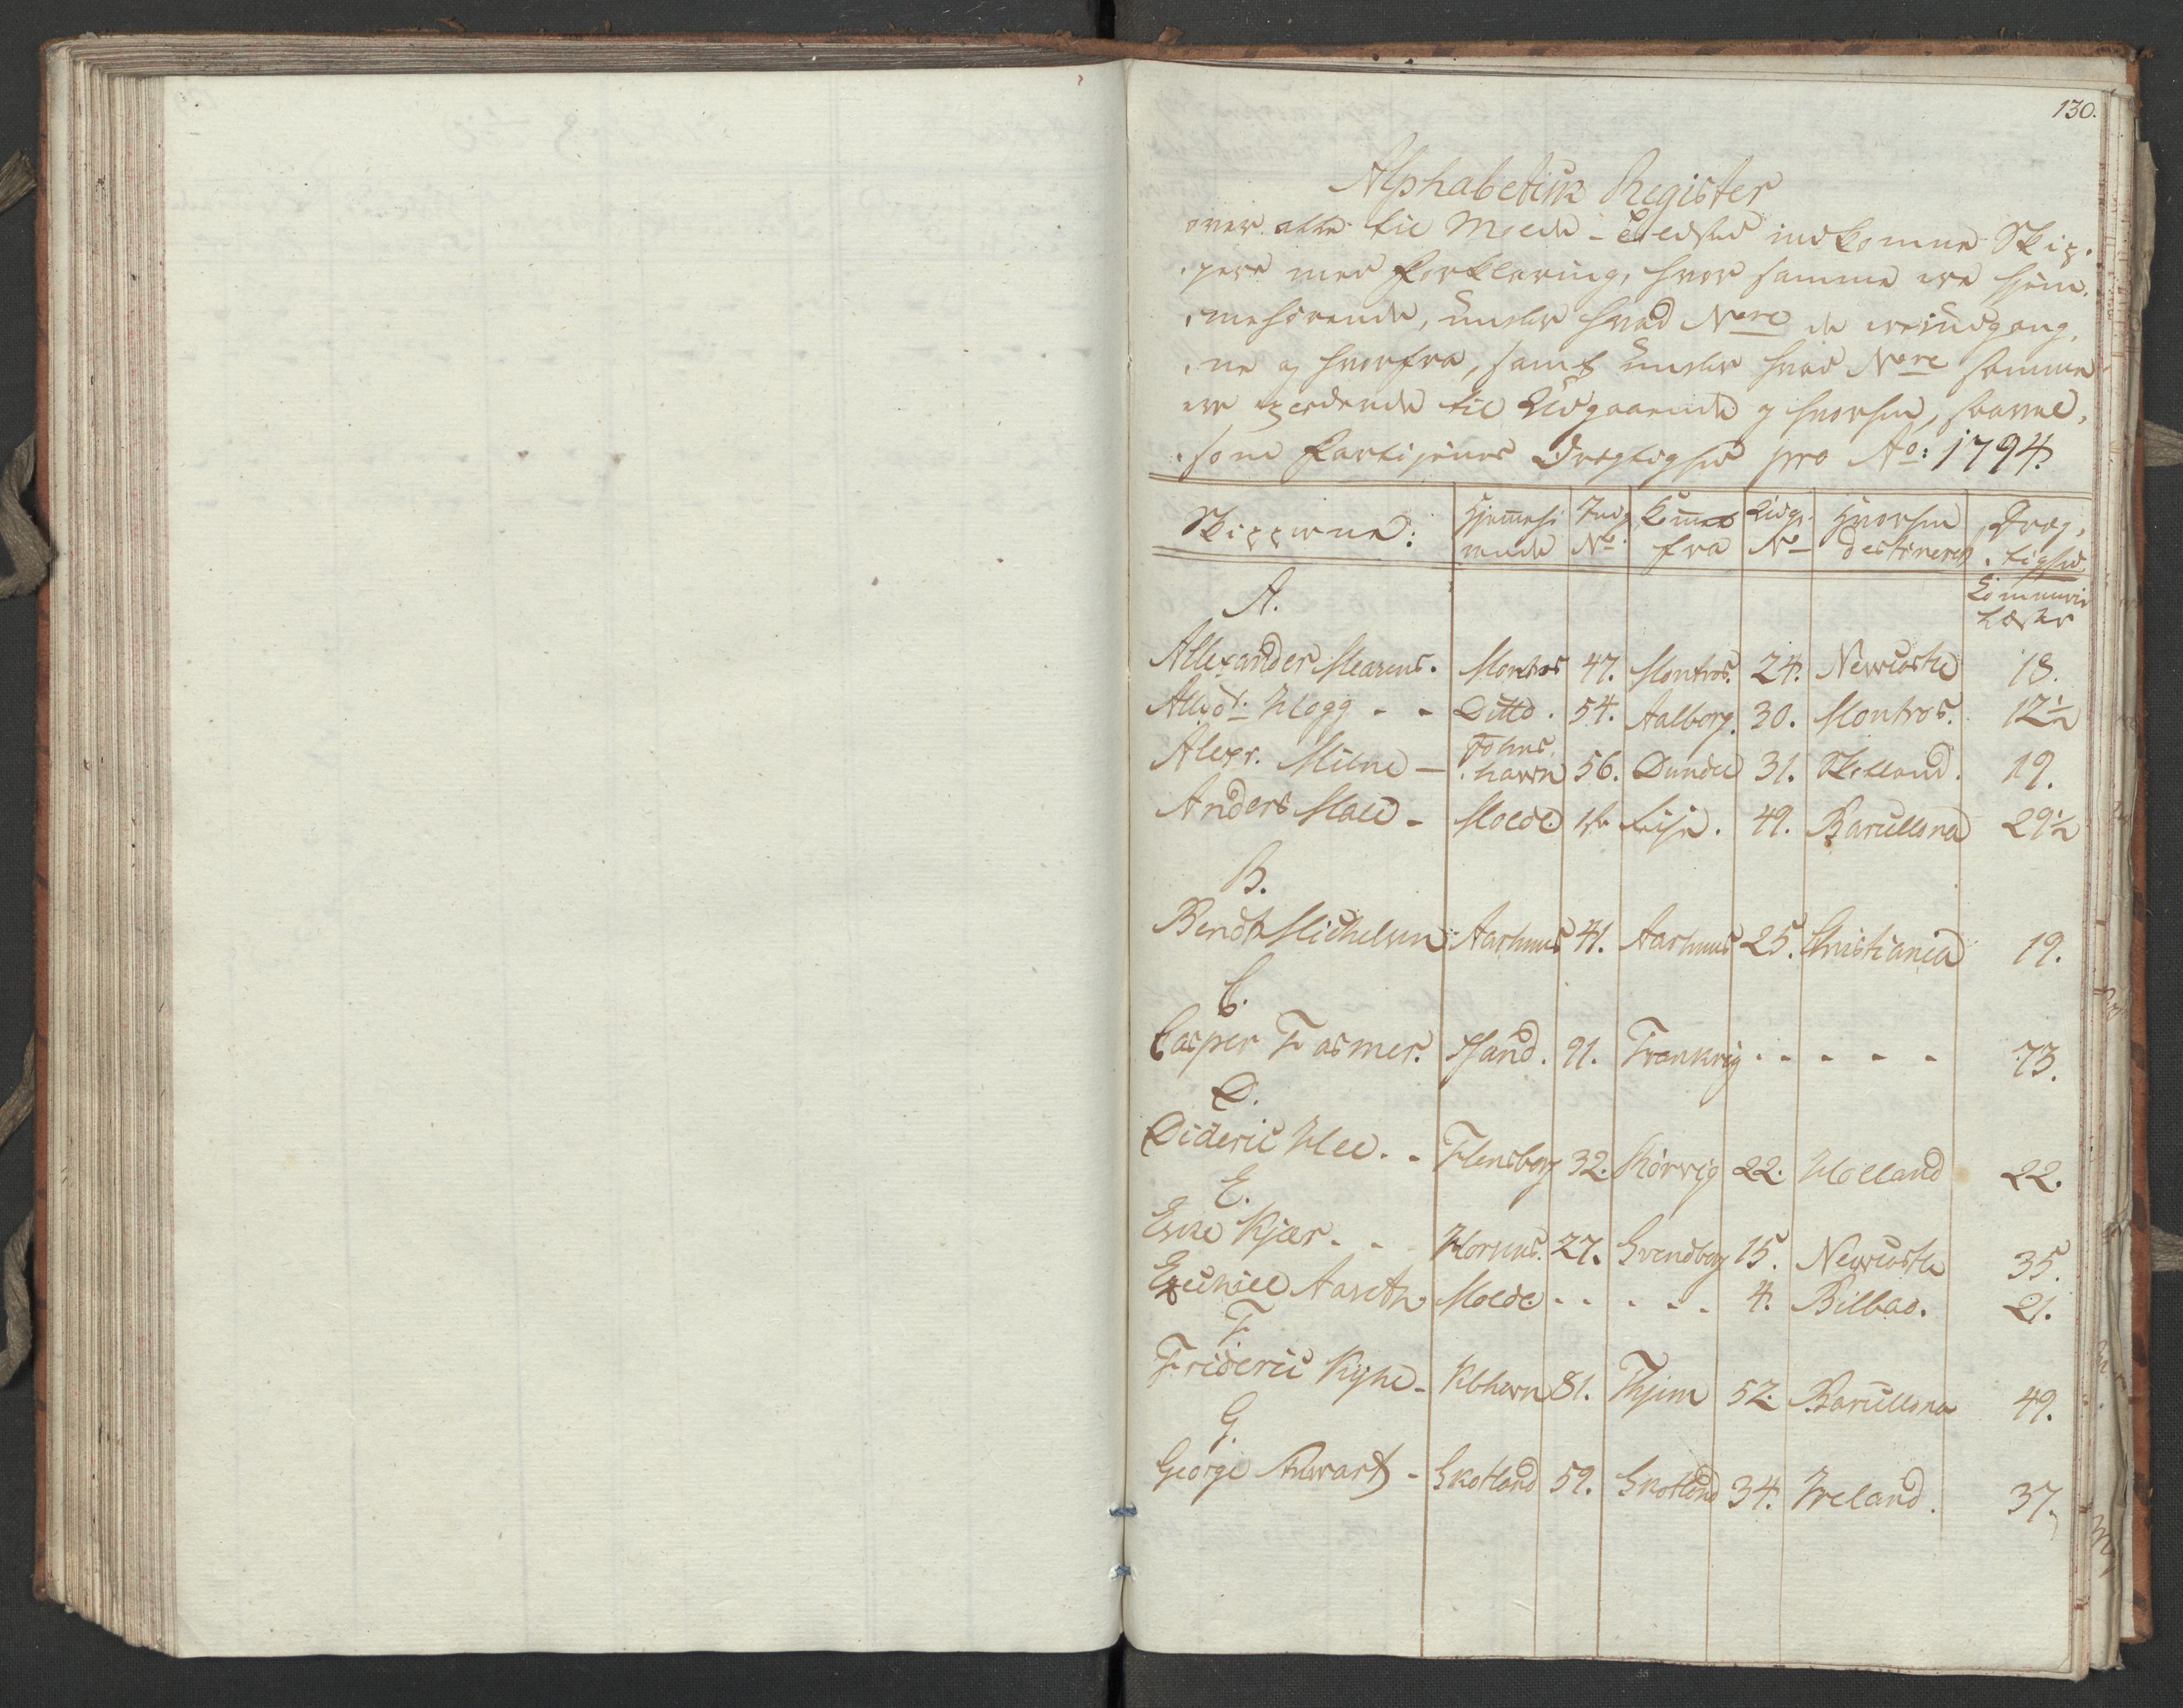 130.
Alphabetisk Register
over alle til Molde Toldsted indkomne Skip-
-pere med Forklaring, hvor samme ere hjem-
-mehørende, under hvad Nere de ere indgang-
-ne og hvorfra, samt under hvad Nere samme
ere til Udgaaende og hvorhen, saavel-
-som Fartøjernes Drægtighed pro Ao: 1794.
Skipperne: Hjemehørende Indg No: Komer fra Udg. No Hvorhen destineret Dræg-tighed
Commerce Læster
A.
Allexander Mearns. Montros 47. Montros. 24. Newcastle 18.
Allexdr. Hogg - - Ditto. 54. Aalborg. 30. Montros. 12½
Alexr. Milne - Johns-havn 56. Dundee 31. Skotland. 19.
Anders Moe - Molde. Riise. 49. Barcellona 29½
B.
Bendt Michelsen Aarhuus 41. Aarhuus 25. Christiania 19.
C.
Casper Fasmer. Sand. 91. Frankrig - - - - - 73.
D.
Dideric Hee. - Flensborg 32. Rørvig 22. Holland 22.
E.
Eske Kjær. - Horsens. 27. Svendborg 15. Newcastle 35.
Ezechiel Aaseth Molde - - - - - 4. Bilbao. 21.
F.
Frideric Kyhl - Kbhavn 81. Thjem 52. Barcellona 49.
G.
George Stewart - Skotland 59. Skotland 34. Ireland. 37.